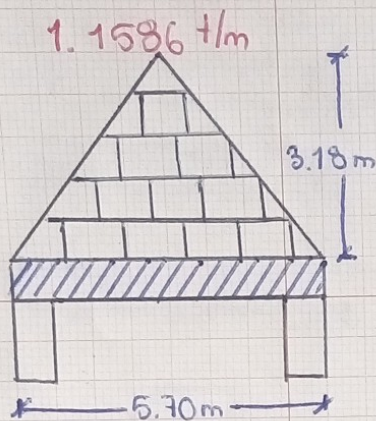 1.1586 t/m
3.18m
5.70m